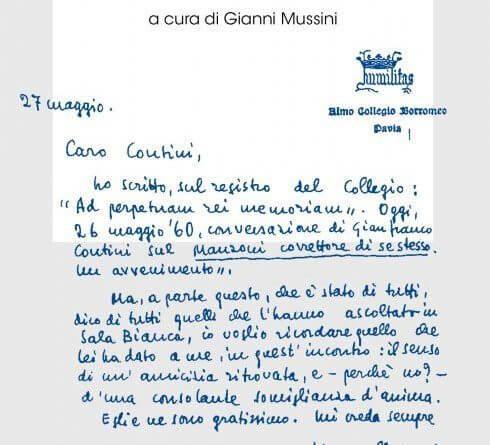 a cura di Gianni Mussini
Humilitas
27 maggio.
Almo Collegio Borromeo
Pavia
Caro Contini,
ho scritto, sul registro del Collegio:
"Ad perpetuam rei memoriam". Oggi,
26 maggio '60, conversazione di Gianfranco
Contini sul Manzoni correttore di se stesso.
Un avvenimento".
Ma, a parte questo, che è stato di tutti,
dico di tutti quelli che l'hanno ascoltato in
Sala Bianca, io voglio ricordare quello che
lei ha dato a me, in quest'incontro: il senso
di un'amicizia ritrovata, e - perchè no? -
d'una consolante somiglianza d'anima.
E glie ne sono gratissimo. Mi creda sempre